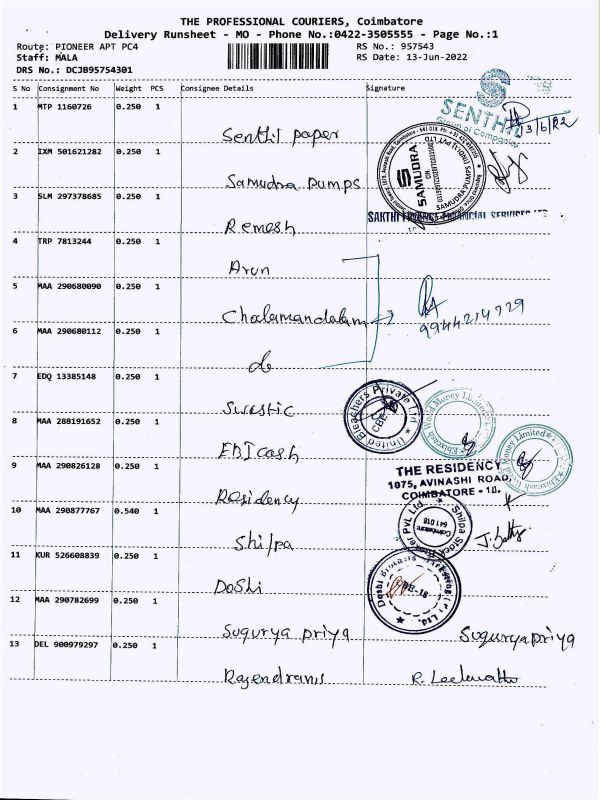 THE PROFESSIONAL COURIERS, Coimbatore
Delivery Runsheet - MO - Phone No.:0422-3505555 - Page No.:1
Route: PIONEER APT PC4 RS No.: 957543
Staff: MALA RS Date: 13-Jun-2022
DRS No.: DCJB95754301
S No Consignment No Weight PCS Consignee Details Signature
1 MTP 1160726 0.250 1
Senthil paper
SENTHIL
Group of Companies
13/6/22
2 IXM 501621282 0.250 1
Samudra Pumps
SAMUDRA
SAMUDRA PUMPS
3 SLM 297378685 0.250 1
Remesh
SAKTHI FINANCE FINANCIAL SERVICES LTD
4 TRP 7813244 0.250 1
Arun
5 MAA 290680090 0.250 1
Cholamandalam
9944214729
6 MAA 290680112 0.250 1
do
7 EDQ 13385148 0.250 1
Swastic
United Bleachers Private Ltd
CBE
8 MAA 288191652 0.250 1
EBIcash
Ebixcash World Money Limited
World Money Limited
9 MAA 290826128 0.250 1
Residency
THE RESIDENCY
1075, AVINASHI ROAD,
COIMBATORE - 18.
10 MAA 290877767 0.540 1
Shilpa
Shilpa Stock Broker Pvt. Ltd
Coimbatore
641 018
11 KUR 526608839 0.250 1
Doshi
12 MAA 290782699 0.250 1
Sugurya priya Sugurya priya
13 DEL 900979297 0.250 1
Rajendran